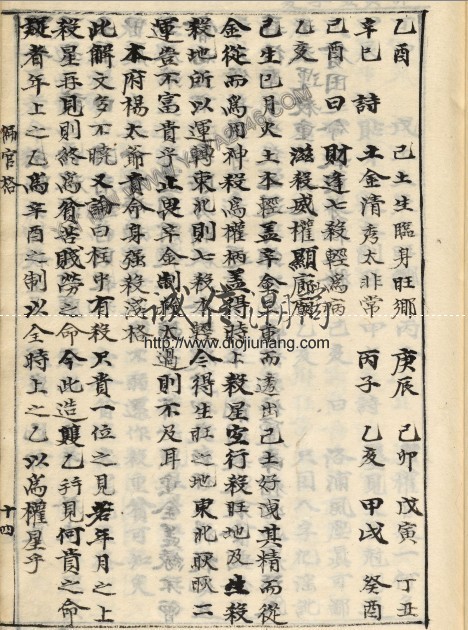 乙酉　己土生臨身旺鄉　庚辰　己卯　戊寅　丁丑
辛巳　詩　土金清秀太非常　丙子　乙亥　甲戌　癸酉
己酉　曰　財逢七殺輕為病
乙亥　滋殺威權顯
己生巳月火土不輕盖辛金事而透出己土好洩其精而從
金從而為用神殺為權柄盖得時上殺星宜行殺旺地及生殺
殺地所以運轉東北則七殺今得生旺之地東北二
運豈不富貴乎止畏辛金制太過則不及耳
本府楊太爺貴命身强殺淺格
此解文多不曉又論曰柱中有殺只貴一位之見若年月之上
殺星再見則終為貧苦賤勞之命今此造雙乙并見何貴之命
疑者年上之乙為辛酉之制以全時上之乙以為權星乎
偏官格
十四
www.diojiunang.com